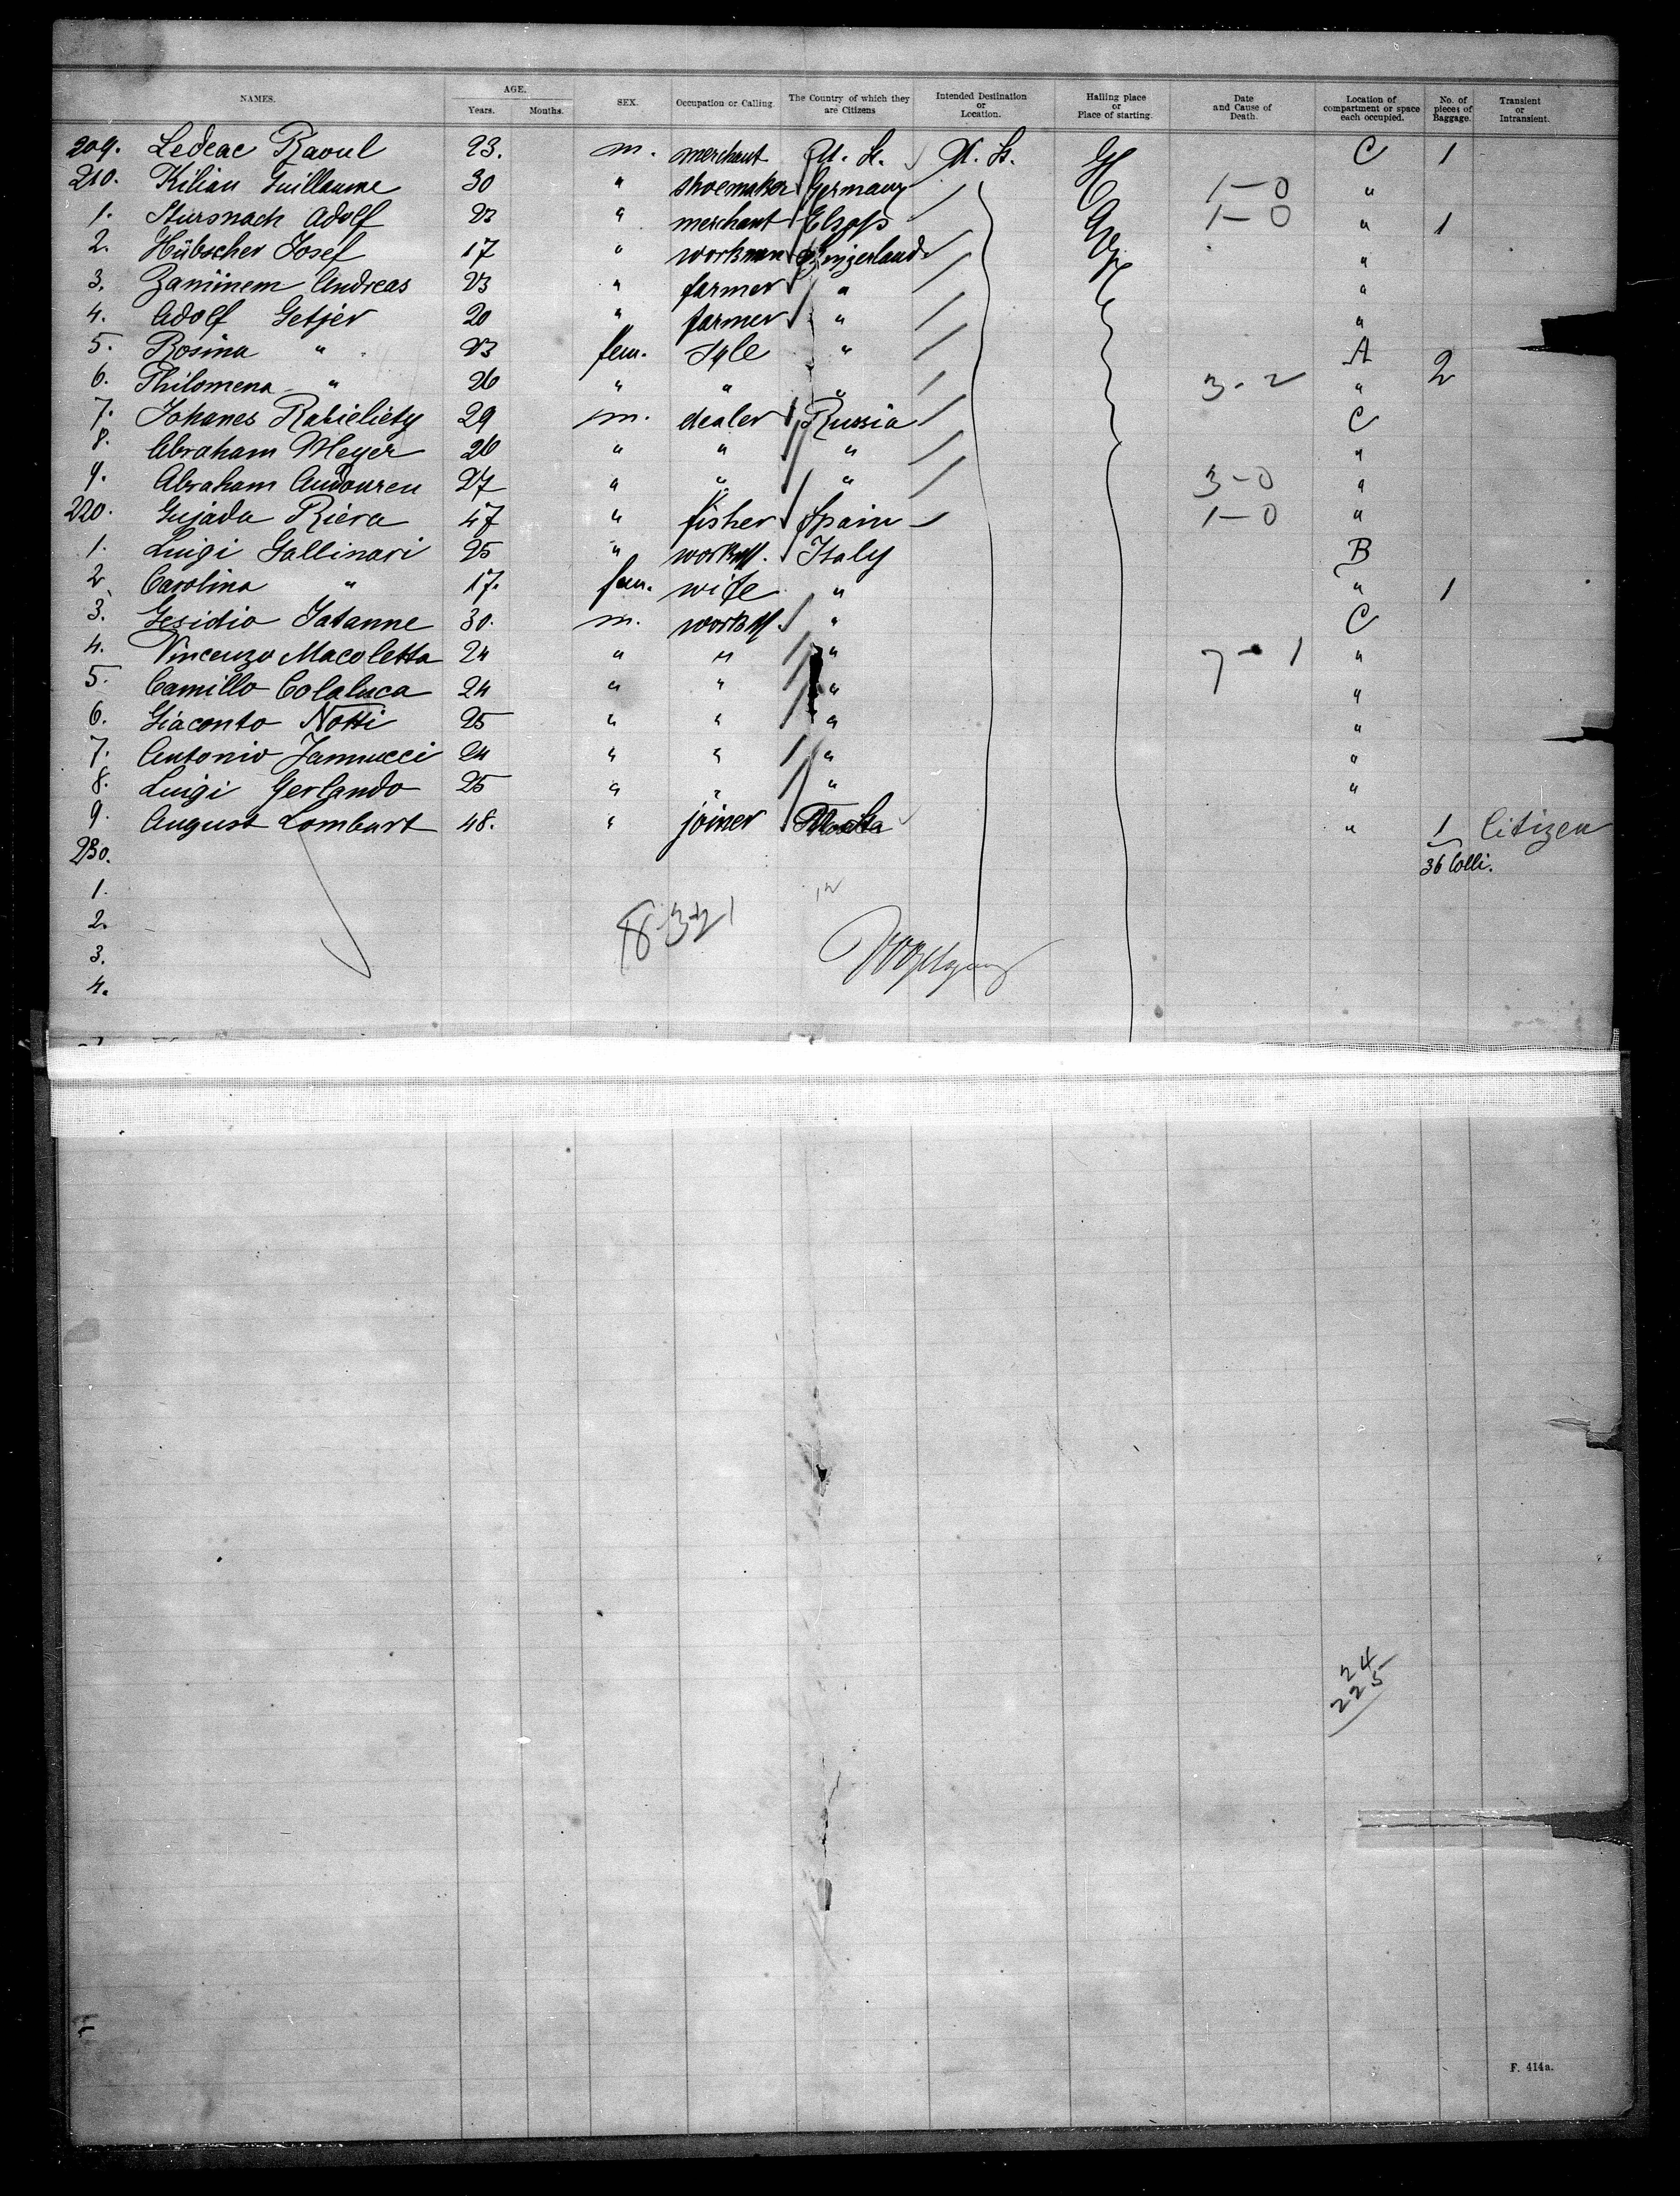 NAMES. AGE. Years. Months. SEX. Occupation or Calling. The Country of which they are Citizens Intended Destination or Location. Hailing place or Place of starting. Date and Cause of Death. Location of compartment or space each occupied. No. of pieces of Baggage. Transient or Intransient.
209. Ledeac Raoul 23. m. merchant U. S. U. S. C 1
210. Kilian Guillaume 30 " shoemaker Germany 1-0 "
1. Adolf " merchant Elsass 1-0 " 1
2. Hübscher Josef 17 " workman "
3. Andreas 23 " farmer " "
4. Adolf Getjer 20 " farmer " "
5. Rosina " 23 fem. " A
6. Philomena " 26 " " " 3-2 " 2
7. Johanes 29 m. dealer Russia C
8. Abraham Meyer 26 " " " "
9. Abraham 27 " " " 3-0 "
220. Gujada Riera 47 " fisher Spain 1-0 "
1. Luigi Gallinari 25 " Italy B
2. Carolina " 17. fem. wife " " 1
3. Gesidio 30. m. " C
4. Vincenzo Macoletta 24 " " " 7-1 "
5. Camillo Colaluca 24 " " " "
6. Giaconto Notti 25 " " " "
7. Antonio Jannucci 24 " " " "
8. Luigi Gerlando 25 " " " "
9. August Lombart 48. " joiner " 1 Citizen
230. 36 Colli.
1.
2. 8-321
3.
4.
24
225
F. 414a.